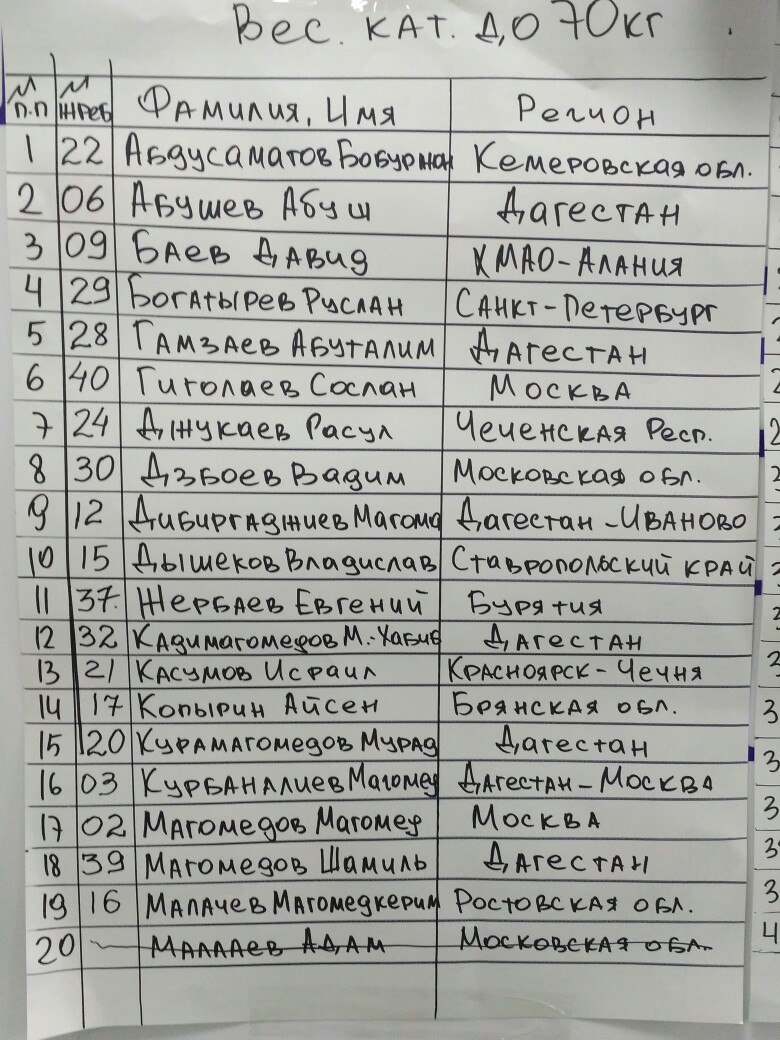 Вес. кат. до 70кг
№ п.п № жреб Фамилия, Имя Регион
1 22 Абдусаматов Бобуржон Кемеровская обл.
2 06 Абушев Абуш Дагестан
3 09 Баев Давид ХМАО-Алания
4 29 Богатырев Руслан Санкт-Петербург
5 28 Гамзаев Абуталим Дагестан
6 40 Гиголаев Сослан Москва
7 24 Джукаев Расул Чеченская Респ.
8 30 Дзбоев Вадим Московская обл.
9 12 Дибиргаджиев Магома Дагестан-Иваново
10 15 Дышеков Владислав Ставропольский край
11 37. Жербаев Евгений Бурятия
12 32 Кадимагомедов М.-Хабиб Дагестан
13 21 Касумов Исраил Красноярск-Чечня
14 17 Копырин Айсен Брянская обл.
15 20 Курамагомедов Мурад Дагестан
16 03 Курбаналиев Магомед Дагестан-Москва
17 02 Магомедов Магомед Москва
18 39 Магомедов Шамиль Дагестан
19 16 Малачев Магомедкерим Ростовская обл.
20 Малаев Адам Московская обл.